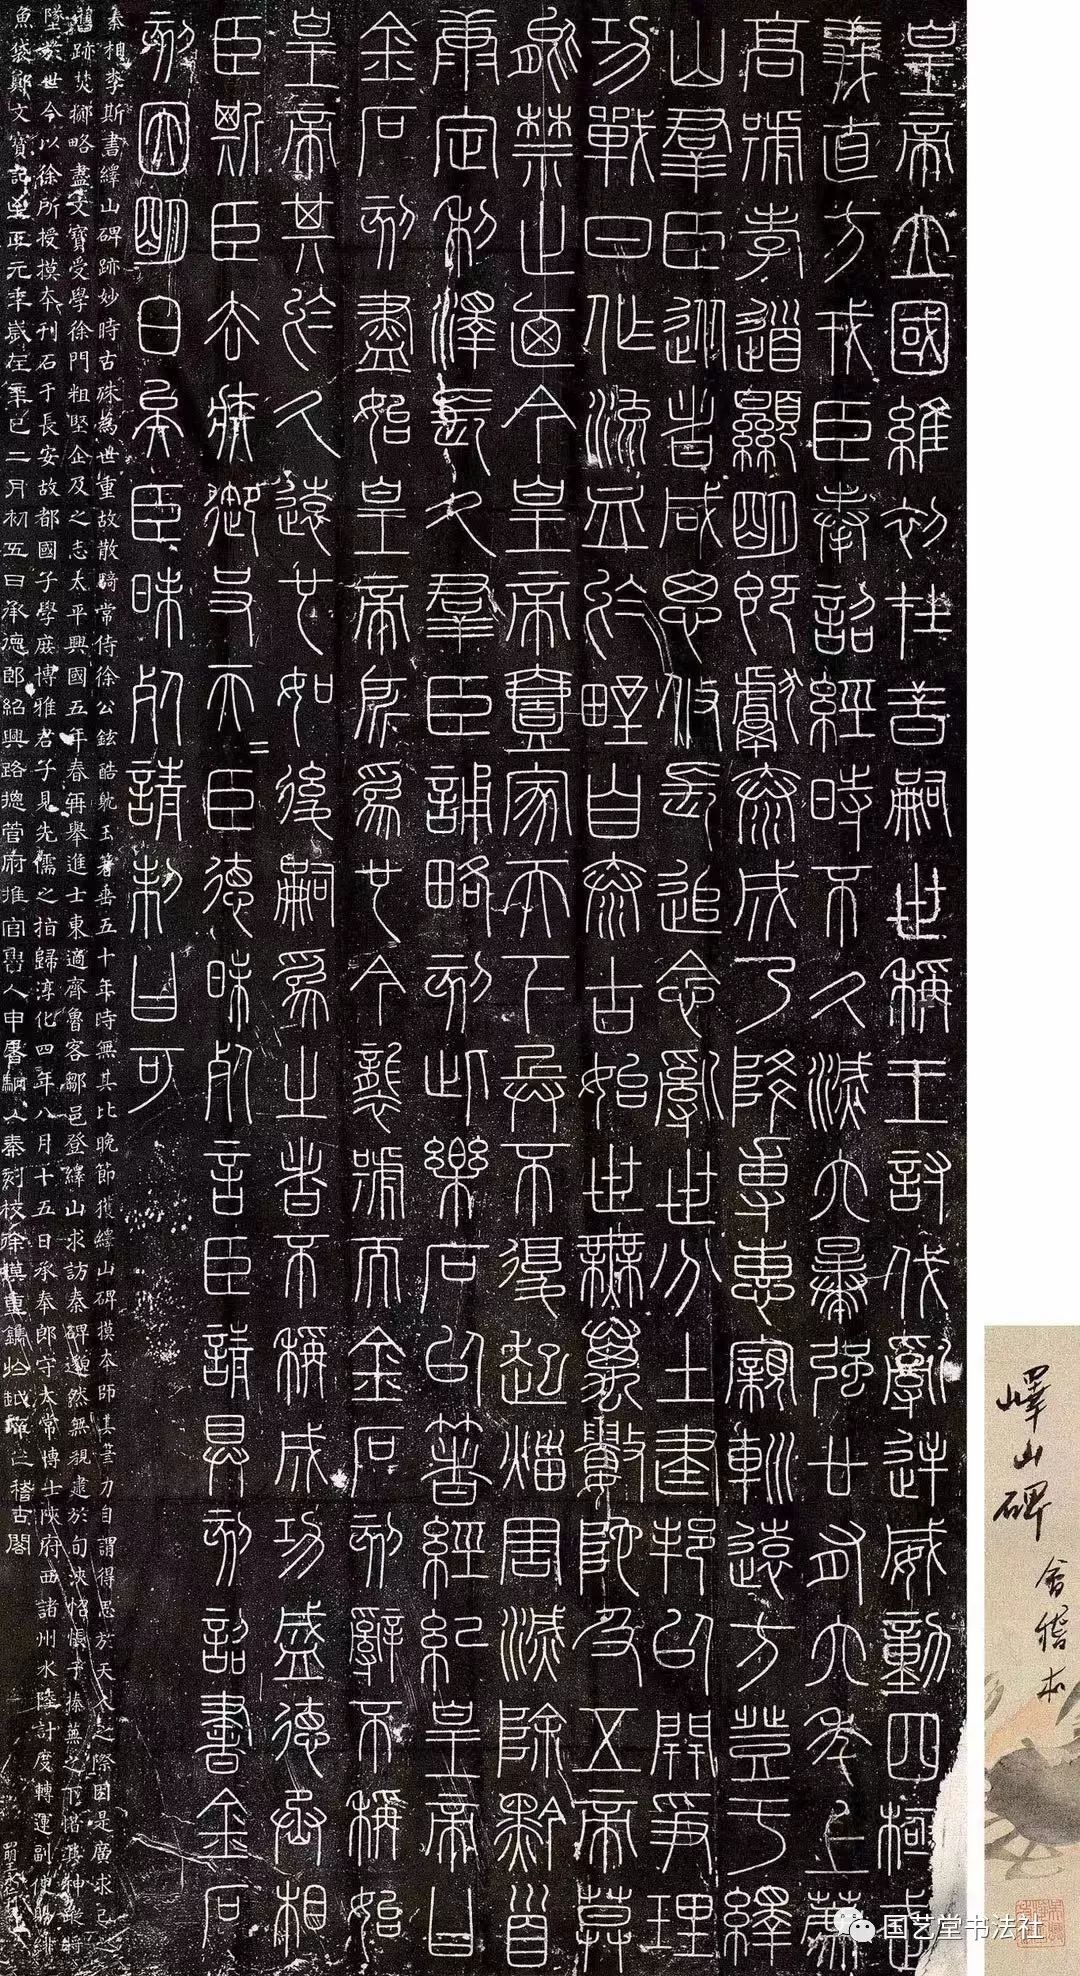 皇帝立國維初在昔嗣世稱王討伐亂逆威動四極武
義直方戎臣奉詔經時不久滅六暴強廿有六年上薦
高號孝道顯明既獻泰成乃降專惠寴䡅遠方登于繹
山羣臣從者咸思攸長追念亂世分土建邦以開爭理
功戰日作流血於野自泰古始世無萬數陀及五帝莫
能禁止迺今皇帝壹家天下兵不復起災害滅除黔首
康定利澤長久羣臣誦略刻此樂石以著經紀皇帝曰
金石刻盡始皇帝所為也今襲號而金石刻辭不稱始
皇帝其於久遠也如後嗣為之者不稱成功盛德丞相
臣斯臣去疾御史夫=臣德昧死言臣請具刻詔書金石
刻因明白矣臣昧死請制曰可
秦相李斯書繹山碑跡妙時古殊為世重故散騎常侍徐公鉉酷耽玉箸垂五十年時無其比晚節獲繹山碑摸本師其筆力自謂得思於天人之際因是廣求己之
舊跡焚擲略盡文寶受學徐門粗堅企及之志太平興國五年春再舉進士東適齊魯客鄒邑登繹山求訪秦碑邈然無覩逮於旬浹怊悵于榛蕪之下惜其神蹤將
墜於世今以徐所授摸本刊石于長安故都國子學庶博雅君子見先儒之指歸淳化四年八月十五日承奉郎守太常博士陝府西諸州水陸計度轉運副使賜緋
魚袋鄭文寶記至正元年歲在辛巳二月初五日承德郎紹興路總管府推官人申屠駉以秦刻校徐摸重鐫於越庠之稽古閣
嶧山碑
會稽本
国艺堂书法社